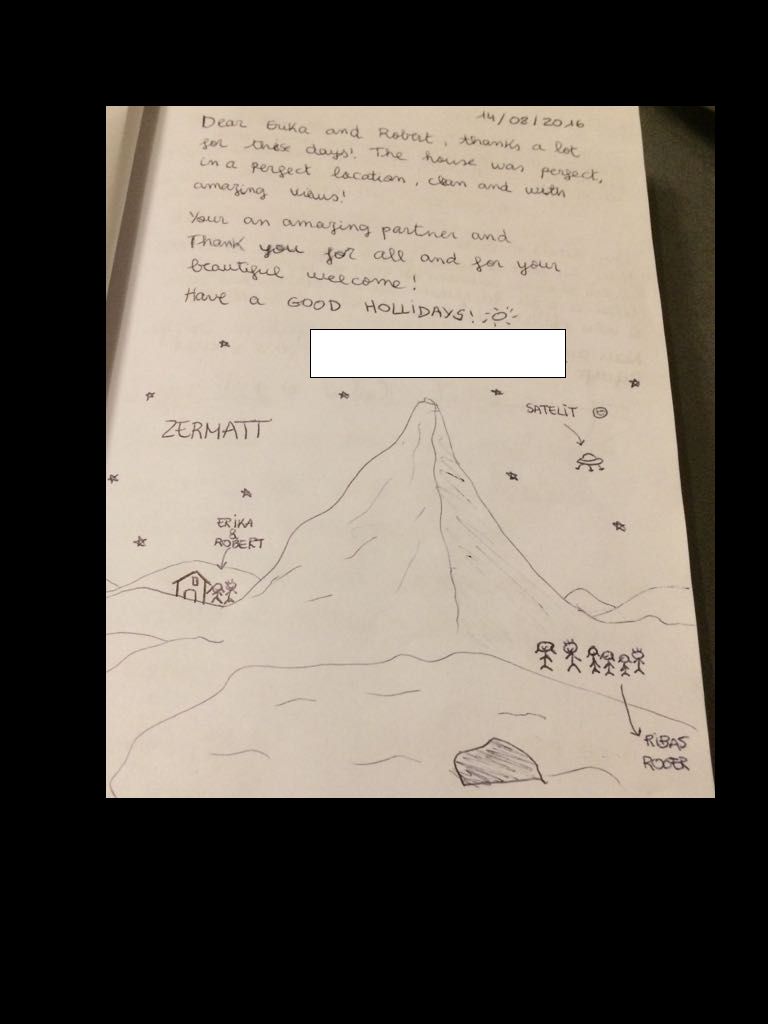 14/08/2016
Dear Erika and Robert, thanks a lot
for these days! The house was perfect,
in a perfect location, clean and with
amazing views!
Your an amazing partner and
Thank you for all and for your
beautiful welcome!
Have a GOOD HOLLIDAYS!
SATELIT
ZERMATT
ERIKA
&
ROBERT
RIBAS
ROGER